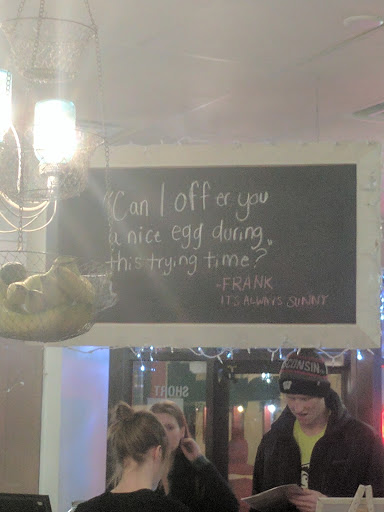 "Can I offer you
a nice egg during
this trying time?"
-FRANK
IT'S ALWAYS SUNNY
SHORT
CONSIN
W